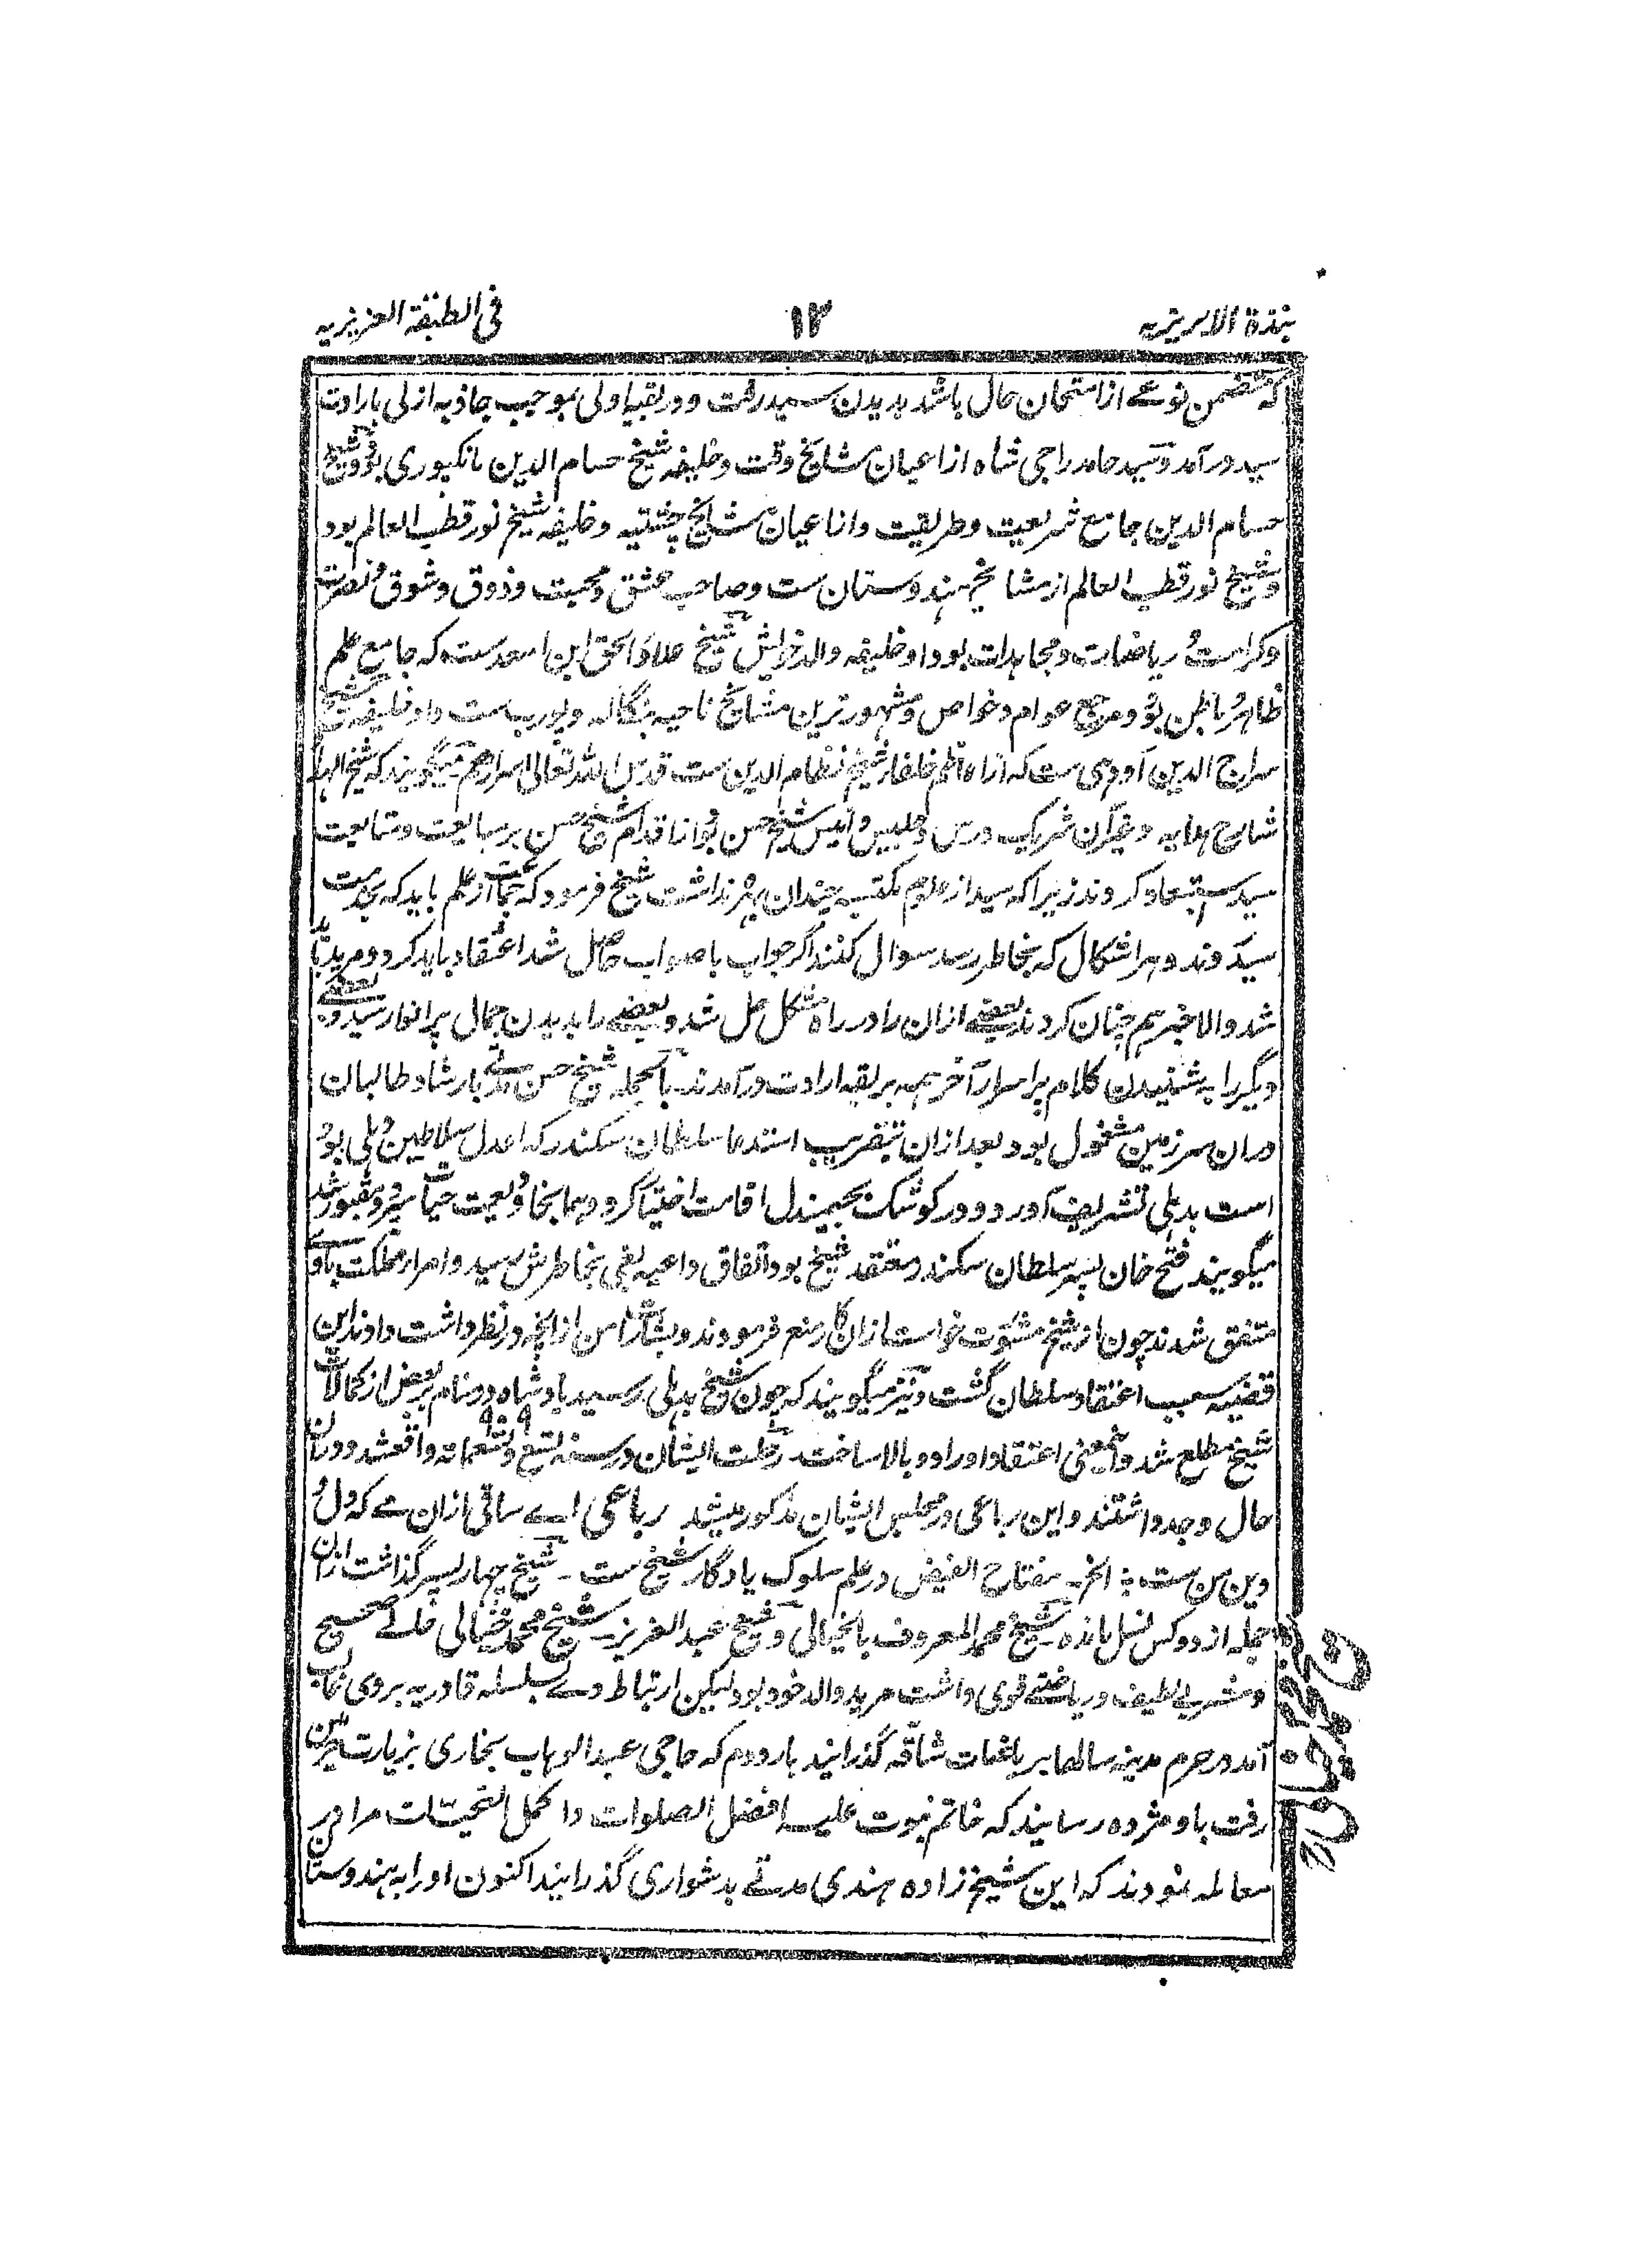 نبذة الابریزیه ۱۳ فی الطبقة العزیزیه
که متضمن نوعے از امتحان حال باشد بدیدن سید رفت و در لقیه اولی بموجب جاذبه ازلی بارادت
سید در آمد و سید حامد راجی شاه از اعیان مشایخ وقت و خلیفه شیخ حسام الدین مانکپوری بود و شیخ
حسام الدین جامع شریعت وطریقت و از اعیان مشایخ چشتیه و خلیفه شیخ نور قطب العالم بود
و شیخ نور قطب العالم از مشایخ هندوستان ست و صاحب عشق و محبت و ذوق و شوق و نصرت
و کرامت و ریاضات و مجاهدات بود و او خلیفه والد خویش شیخ علاء الحق ابن اسعد ست که جامع علم
ظاهر و باطن بود و مرجع عوام و خواص و مشهور ترین مشایخ ناحیه بنگاله و پورب ست و او خلیفه شیخ
سراج الدین اودهی ست که از اعاظم خلفاء شیخ نظام الدین ست قدس الله تعالی اسرارهم میگویند که شیخ الهداد
شارح هدایه و دیگران شریک درس و جلیس و انیس شیخ حسن بود از اقدام شیخ حسن بر مبایعت و متابعت
سید استبعاد کردند زیرا که سید از علوم مکتسبه چندان بهره نداشت شیخ فرمود که جماعت از علم باید که بخدمت
سید روند و هر اشکال که بخاطر رسد سوال کنند اگر جواب با صواب حاصل شد اعتقاد باید کرد و مرید باید
شد والا خیر هم چنان کردند بعضے ازان را در راه مشکل حل شد و بعضے را بدیدن جمال پر انوار سید و بعضے
دیگر را به شنیدن کلام پر اسرار آخر همه بربقه ارادت در آمدند بالجمله شیخ حسن مدتے بارشاد طالبان
دران سرزمین مشغول بود بعد ازان بتقریب استدعا سلطان سکندر که اعدل سلاطین دهلی بود
است بدهلی تشریف آورد و در کوشک بجیمندل اقامت اختیار کرد و همانجا ودیعت حیات سپرد و مقبور شد
میگویند فتح خان پسر سلطان سکندر معتقد شیخ بود اتفاق داعیه بغی بخاطرش رسید و امراء مملکت باوے
متفق شدند چون از شیخ مشورت خواست ازان کار منع فرمودند و بشارت امن از آنچه در نظر داشت دادند این
قضیه سبب اعتقاد سلطان گشت و نیز میگویند که چون شیخ بدهلی رسید بادشاه در منام بر بعض از کمالات
شیخ مطلع شد و این معنی اعتقاد او را دو بالا ساخت رحلت ایشان در سنه تسع و تسعمائة ۹۰۹ واقع شد و دران
حال وجد داشتند و این رباعی در مجلس ایشان مذکور میشد رباعی اے ساقی ازان مے که دل و
دین من ست ؞ الخ مفتاح الفیض در علم سلوک یادگار شیخ ست ۔ شیخ چهار پسر گذاشت ازان
جمله از دو کس نسل مانده ۔ شیخ محمد المعروف بالخیالی و شیخ عبد العزیز ۔ شیخ محمد خیالی حالے صحیح
و مشربے لطیف و ریاضتے قوی داشت مرید والد خود بود لیکن ارتباط وے بسلسله قادریه بروی غالب
آمد در حرم مدینه سالها بریاضات شاقه گذرانید بار دوم که حاجی عبد الوهاب بخاری بزیارت حرمین
رفت باو مژده رسانید که خاتم نبوت علیه افضل الصلوات و اکمل التحیات مرا در
معامله نمودند که این شیخ زاده هندی مدتے بدشواری گذرانید اکنون او را به هندوستان